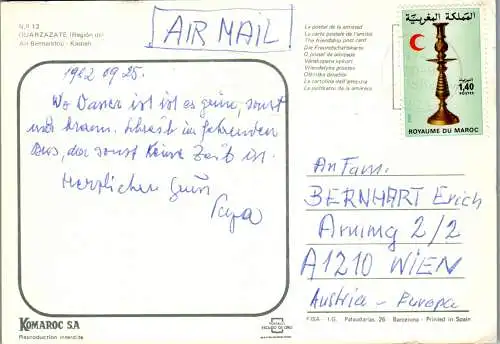 N.º 13
OUARZAZATE (Région de)
Aït Benhaddou - Kasbah
AIR MAIL
La postal de la amistad
La carte postale de l'amitié
The friendship post card
Die Freundschaftskarte
O postal da amizade
Vänskapens vykort
Vriendelijke groeten
La cartolina dell'amicizia
المملكة المغربية
1,40
POSTES
ROYAUME DU MAROC
1982 09 25.
Wo Wasser ist ist es grün, sonst
und braun. Schreib im fahrenden
Bus, da sonst keine Zeit ist.
Herzlichen Gruss
Papa
An Fam.
BERNHART Erich
Arnung 2/2
A1210 WIEN
Austria - Europa
KOMAROC S.A
Reproduction interdite
ESCUDO DE ORO
FISA - I.G. Palaudarias, 26 Barcelona - Printed in Spain